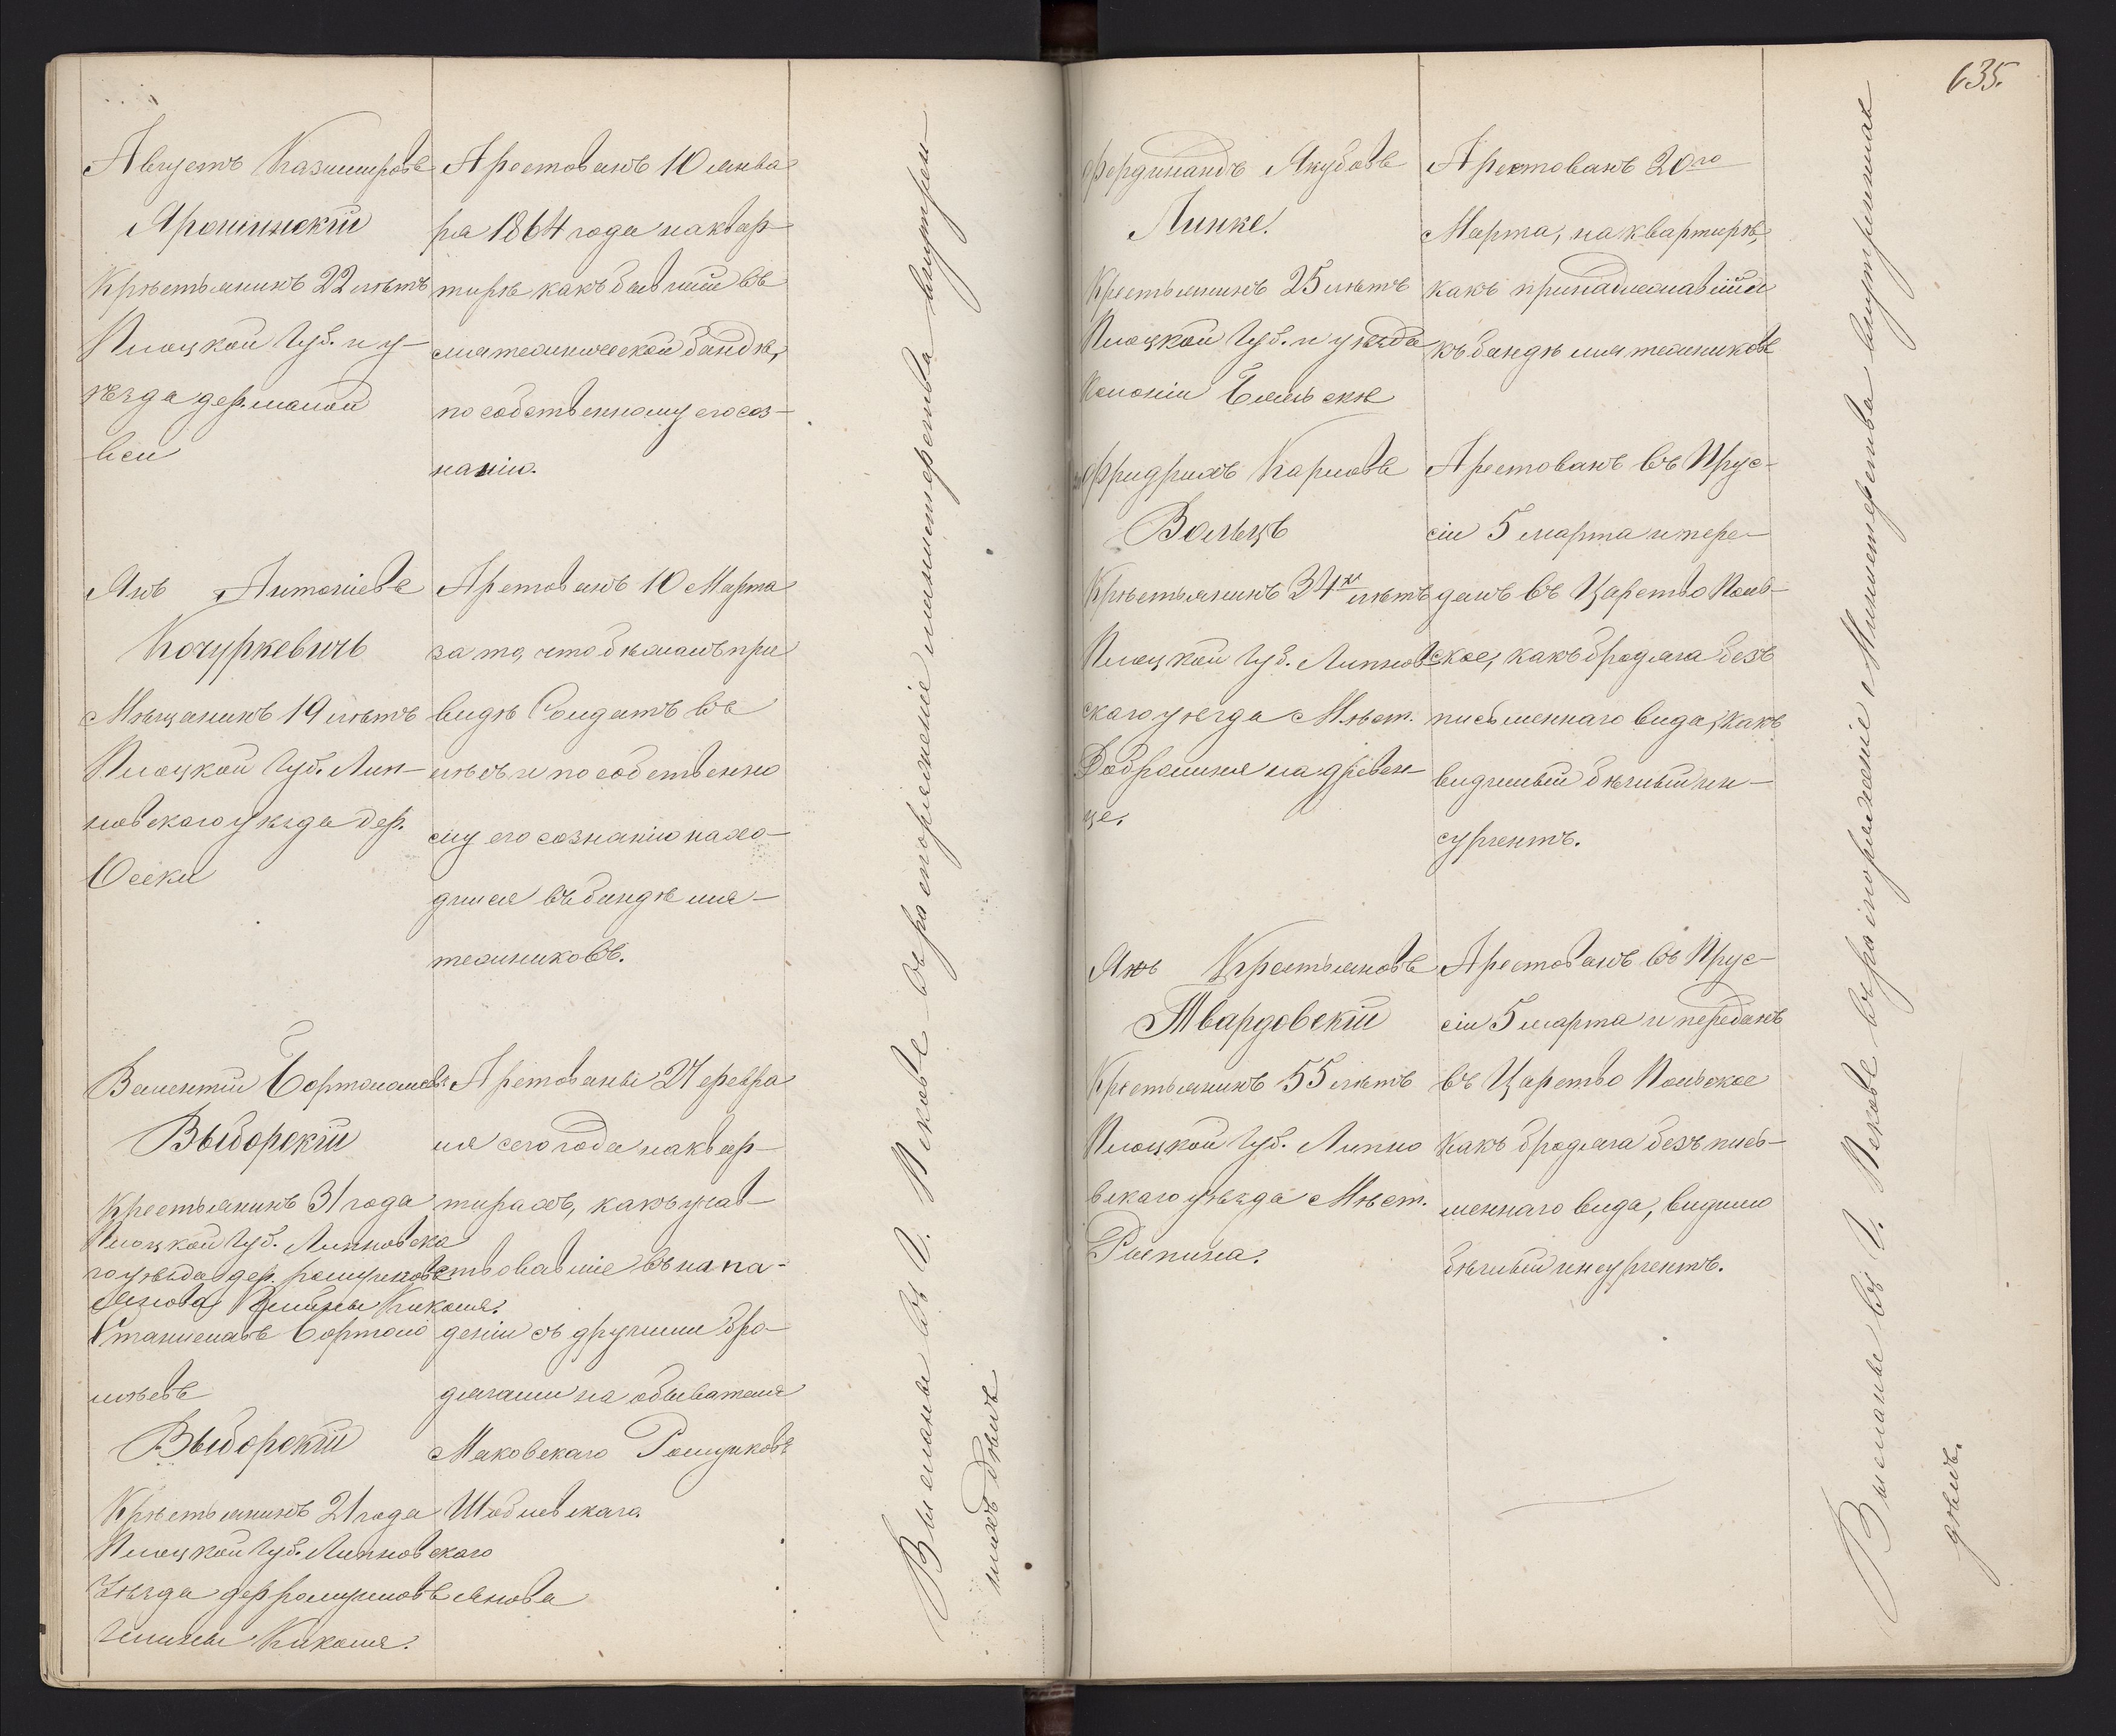 Августъ Казимировъ
Ярошинскій
Крѣстьянинъ 22 лѣтъ
Плоцкой Губ. и у-
ѣзда дер. малой
вси
Арестованъ 10 янва
ря 1864 года на квар-
тирѣ какъ бывшій въ
мятежнической бандѣ,
по собственному его соз-
нанію.
Янъ Антоніевъ
Кочуркевичъ
Мѣщанинъ 19 лѣтъ
Плоцкой Губ. Лип-
новскаго уѣзда дер.
Осеки
Аретованъ 10 Марта
за то, что бѣжалъ при
видѣ Солдатъ въ
лѣсъ и по собственно
му его сознанію нахо-
дился въ бандѣ мя-
тежниковъ.
Валентій Бортоломѣевъ
Выборскій
Крестьянинъ 31 года
Плоцкой Губ. Липновска
го уѣзда дер.
Янова Гмины Кикола.
Станиславъ Бортоло
мѣевъ
Выборскій
Крѣстьянинъ 21 года
Плоцкой Губ. Липновскаго
Уѣзда дер Янова
гмины Кикола.
Аретованы 27 февра
ля сего года на квар-
тирахъ, какъ учав-
ствовавшіе въ напа-
деніи съ другими бро-
дягами на обывателя
Маковскаго
Высланы въ Г. Псковъ въ распоряженіе министерства внутрен-
нихъ дѣлъ
635.
Фердинандъ Якубовъ
Линке.
Крестьянинъ 25 лѣтъ
Плоцкой Губ. и уѣзда
Колоніи
Арестованъ 20го
Марта, на квартирѣ,
какъ принадлежавшій
къ бандѣ мятежниковъ
Фридрихъ Карловъ
Вольцъ
Крѣстьянинъ 34х лѣтъ
Плоцкой Губ. Липнов-
скаго уѣзда Мѣст.
Добржиня на дрвен-
це.
Арестованъ въ Прус-
сіи 5 марта и пере-
данъ въ Царство Поль-
ское, какъ бродяга безъ
письменнаго вида, какъ
видимый бѣглый ин-
сургентъ.
Янъ Крестьяновъ
Твардовскій
Крестьянинъ 55 лѣтъ
Плоцкой Губ. Липно
вскаго уѣзда Мѣст.
Рыпина.
Арестованъ въ Прус-
сіи 5 марта и переданъ
въ Царство Польское
какъ бродяга безъ пись-
меннаго вида, видимо
бѣглый инсургентъ.
Высланы въ Г. Псковъ въ распоряженіе Министерства внутреннихъ
дѣлъ.